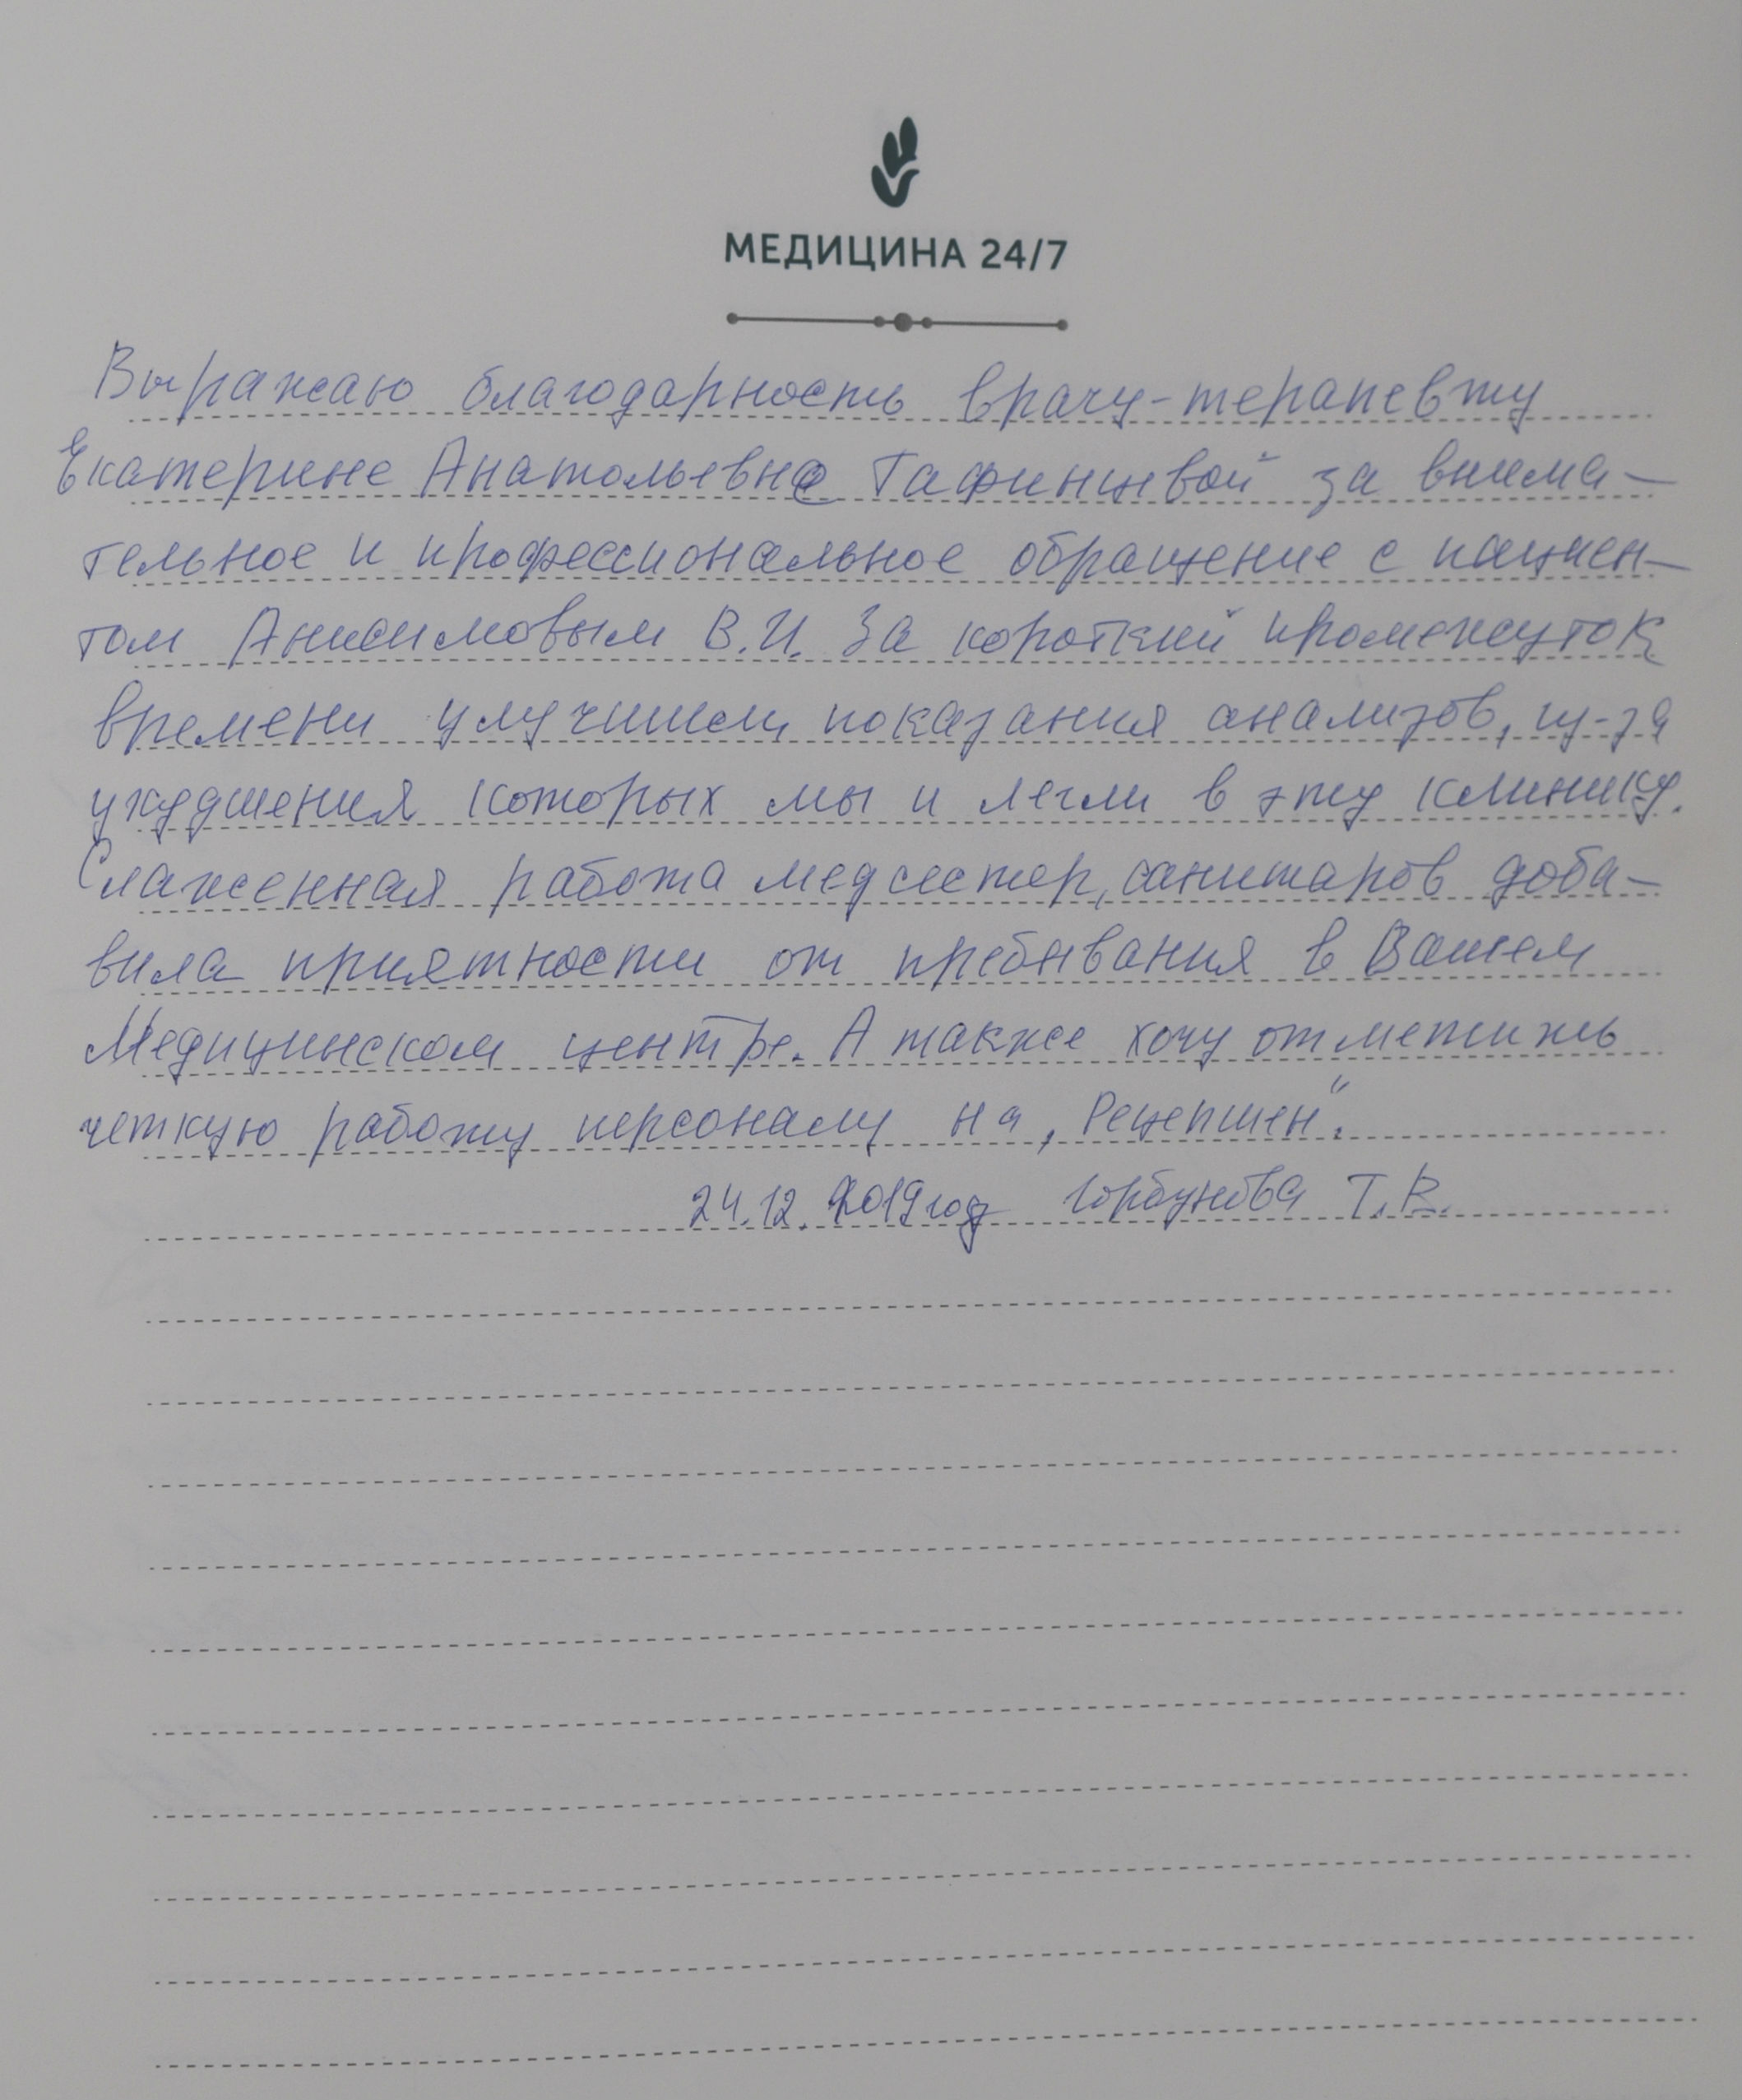 МЕДИЦИНА 24/7
Выражаю благодарность врачу-терапевту
Екатерине Анатольевне Гафинцевой за внима-
тельное и профессиональное обращение с пациен-
том Анисимовым В.И. За короткий промежуток
времени улучшили показания анализов, из-за
ухудшения которых мы и легли в эту клинику.
Слаженная работа медсестер, санитаров доба-
вила приятности от пребывания в Вашем
Медицинском центре. А также хочу отметить
четкую работу персоналу на „Рецепшен“.
24.12.2019год Горбунова Т.В.